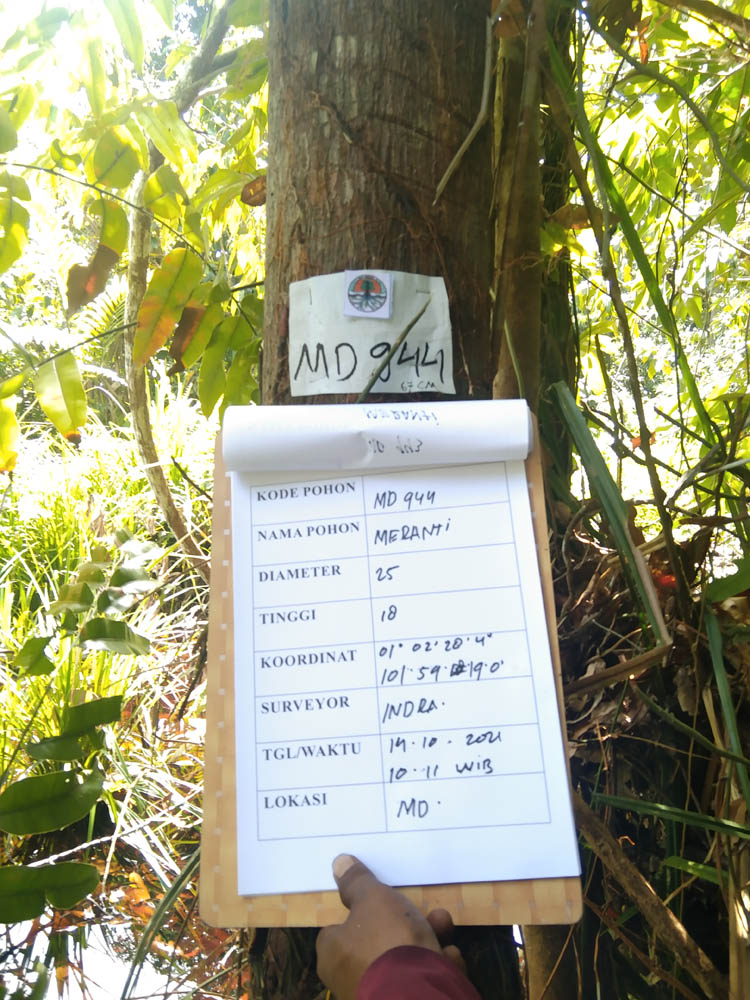 MD 944
67 CM
KODE POHON MD 944
NAMA POHON MERANTI
DIAMETER 25
TINGGI 18
KOORDINAT 01° 02' 20' 4"
101 59 19 0'
SURVEYOR INDRA.
TGL/WAKTU 14.10.2021
10.11 WIB
LOKASI MD.